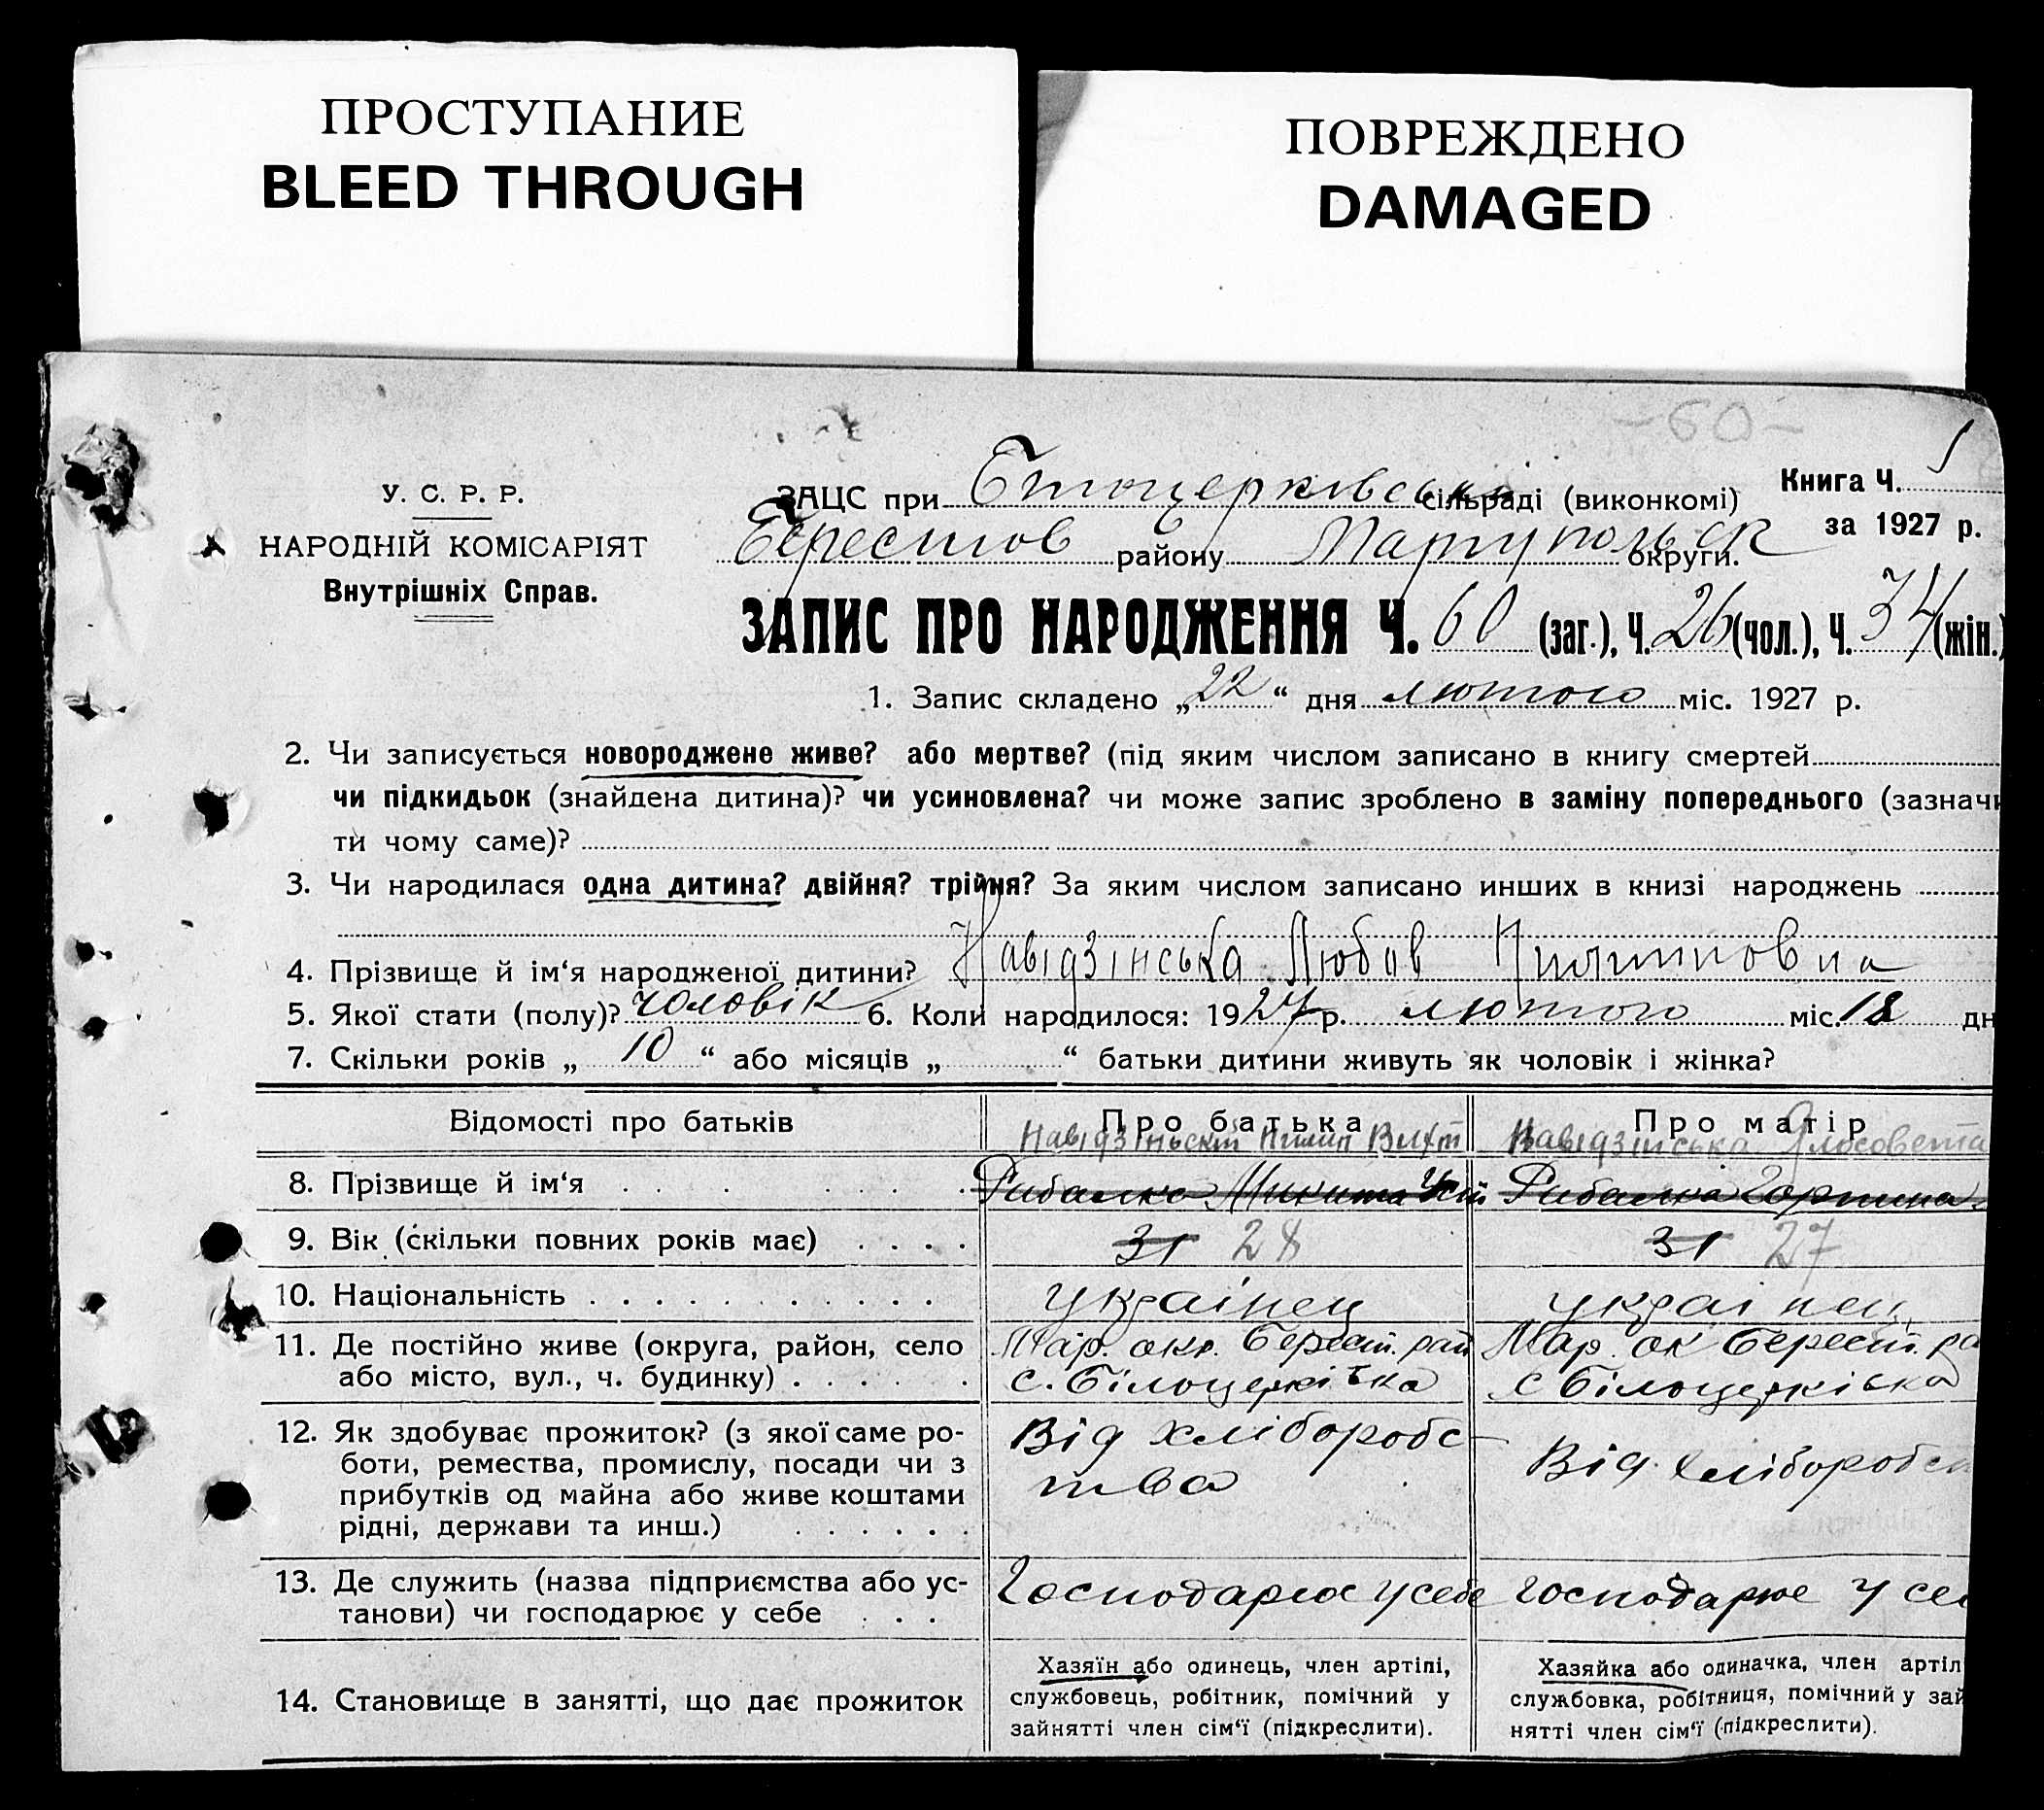 ПРОСТУПАНИЕ
BLEED THROUGH
ПОВРЕЖДЕНО
DAMAGED
-60-
У. С. Р. Р.
НАРОДНІЙ КОМІСАРІЯТ
Внутрішніх Справ.
Книга Ч. 1
за 1927 р.
ЗАЦС при сільраді (виконкомі)
Берестов району Маріупольск округи.
ЗАПИС ПРО НАРОДЖЕННЯ Ч. 60 (заг.), Ч. 26 (чол.), Ч. 34 (жін.)
1. Запис складено „22“ дня лютого міс. 1927 р.
2. Чи записується новороджене живе? або мертве? (під яким числом записано в книгу смертей
чи підкидьок (знайдена дитина)? чи усиновлена? чи може запис зроблено в заміну попереднього (зазначи
ти чому саме)?
3. Чи народилася одна дитина? двійня? трійня? За яким числом записано инших в книзі народжень
4. Прізвище й ім‘я народженої дитини? Навідзінська Любов Пилиповна
5. Якої стати (полу)? чоловік 6. Коли народилося: 1927 р. лютого міс. 18 дн
7. Скільки років „10“ або місяців „ “ батьки дитини живуть як чоловік і жінка?
Відомості про батьків Про батька Про матір
Навідзіньскт Пилип Навідзінська
8. Прізвище й ім‘я Рибалка Микита Рибалка Горпина
9. Вік (скільки повних років має) 31 28 31 27
10. Національність українец українец
11. Де постійно живе (округа, район, село Мар. окр. Берест. рай Мар. ок Берест. ра
або місто, вул., ч. будинку) с. Білоцерківка с Білоцерківка
12. Як здобуває прожиток? (з якої саме ро- Від хліборобс-
боти, ремества, промислу, посади чи з Від хліборобс
прибутків од майна або живе коштами тва
рідні, держави та инш.)
13. Де служить (назва підприємства або ус- Господарює у себе господарює у се
танови) чи господарює у себе
14. Становище в занятті, що дає прожиток
Хазяїн або одинець, член артілі,
службовець, робітник, помічний у
зайнятті член сім‘ї (підкреслити).
Хазяйка або одиначка, член артіл
службовка, робітниця, помічний у зай
нятті член сім‘ї (підкреслити).